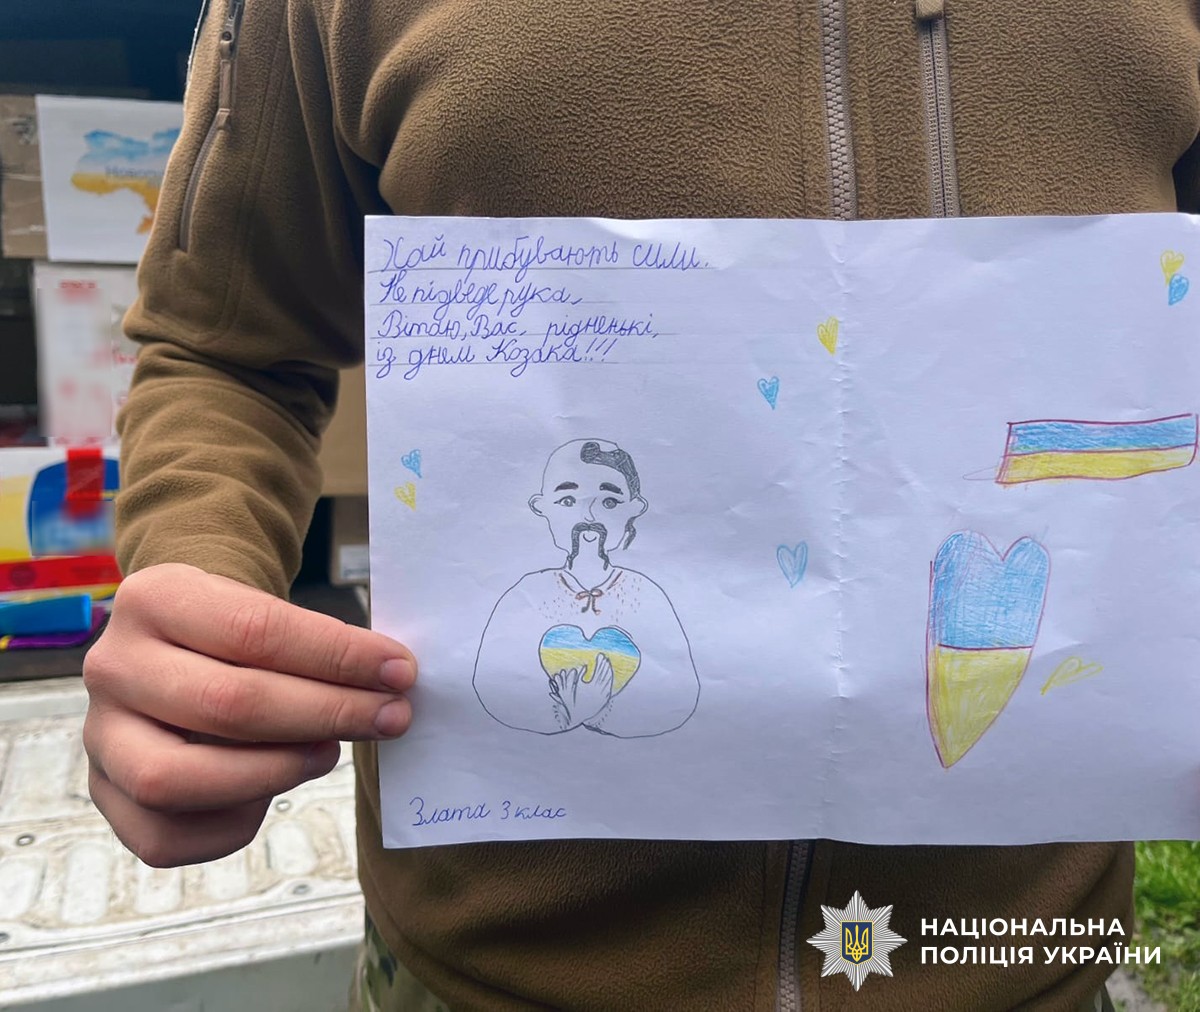 Хай прибувають сили.
Не підведе рука,
Вітаю, Вас, рідненькі,
із днем Козака!!!
Злата 3 клас
НАЦІОНАЛЬНА
ПОЛІЦІЯ УКРАЇНИ